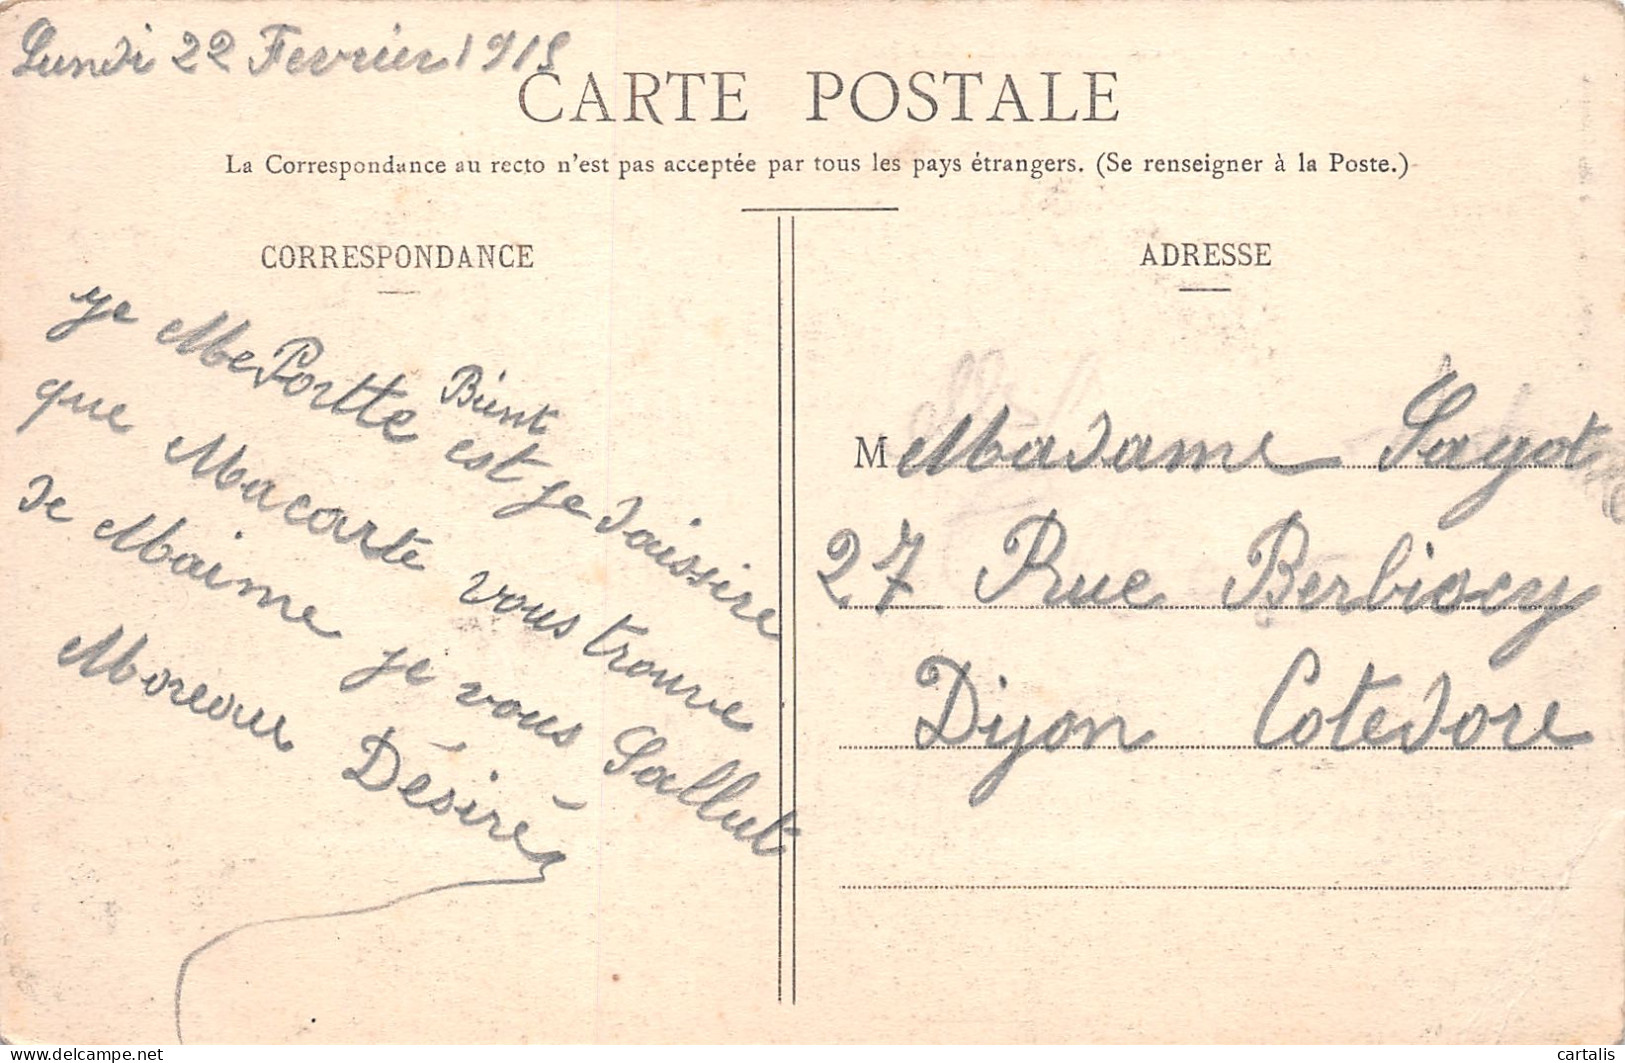 Lundi 22 Fevrier 1915
CARTE POSTALE
La Correspondance au recto n'est pas acceptée par tous les pays étrangers. (Se renseigner à la Poste.)
CORRESPONDANCE
ye Me Portte Bient est je daissire
que Macarte vous trouve
de Maime je vous Sallut
Moreau Désiré
ADRESSE
M Madame Sagot
27 Rue Berbiscy
Dijon Cotedore
cartalis
delcampe.net